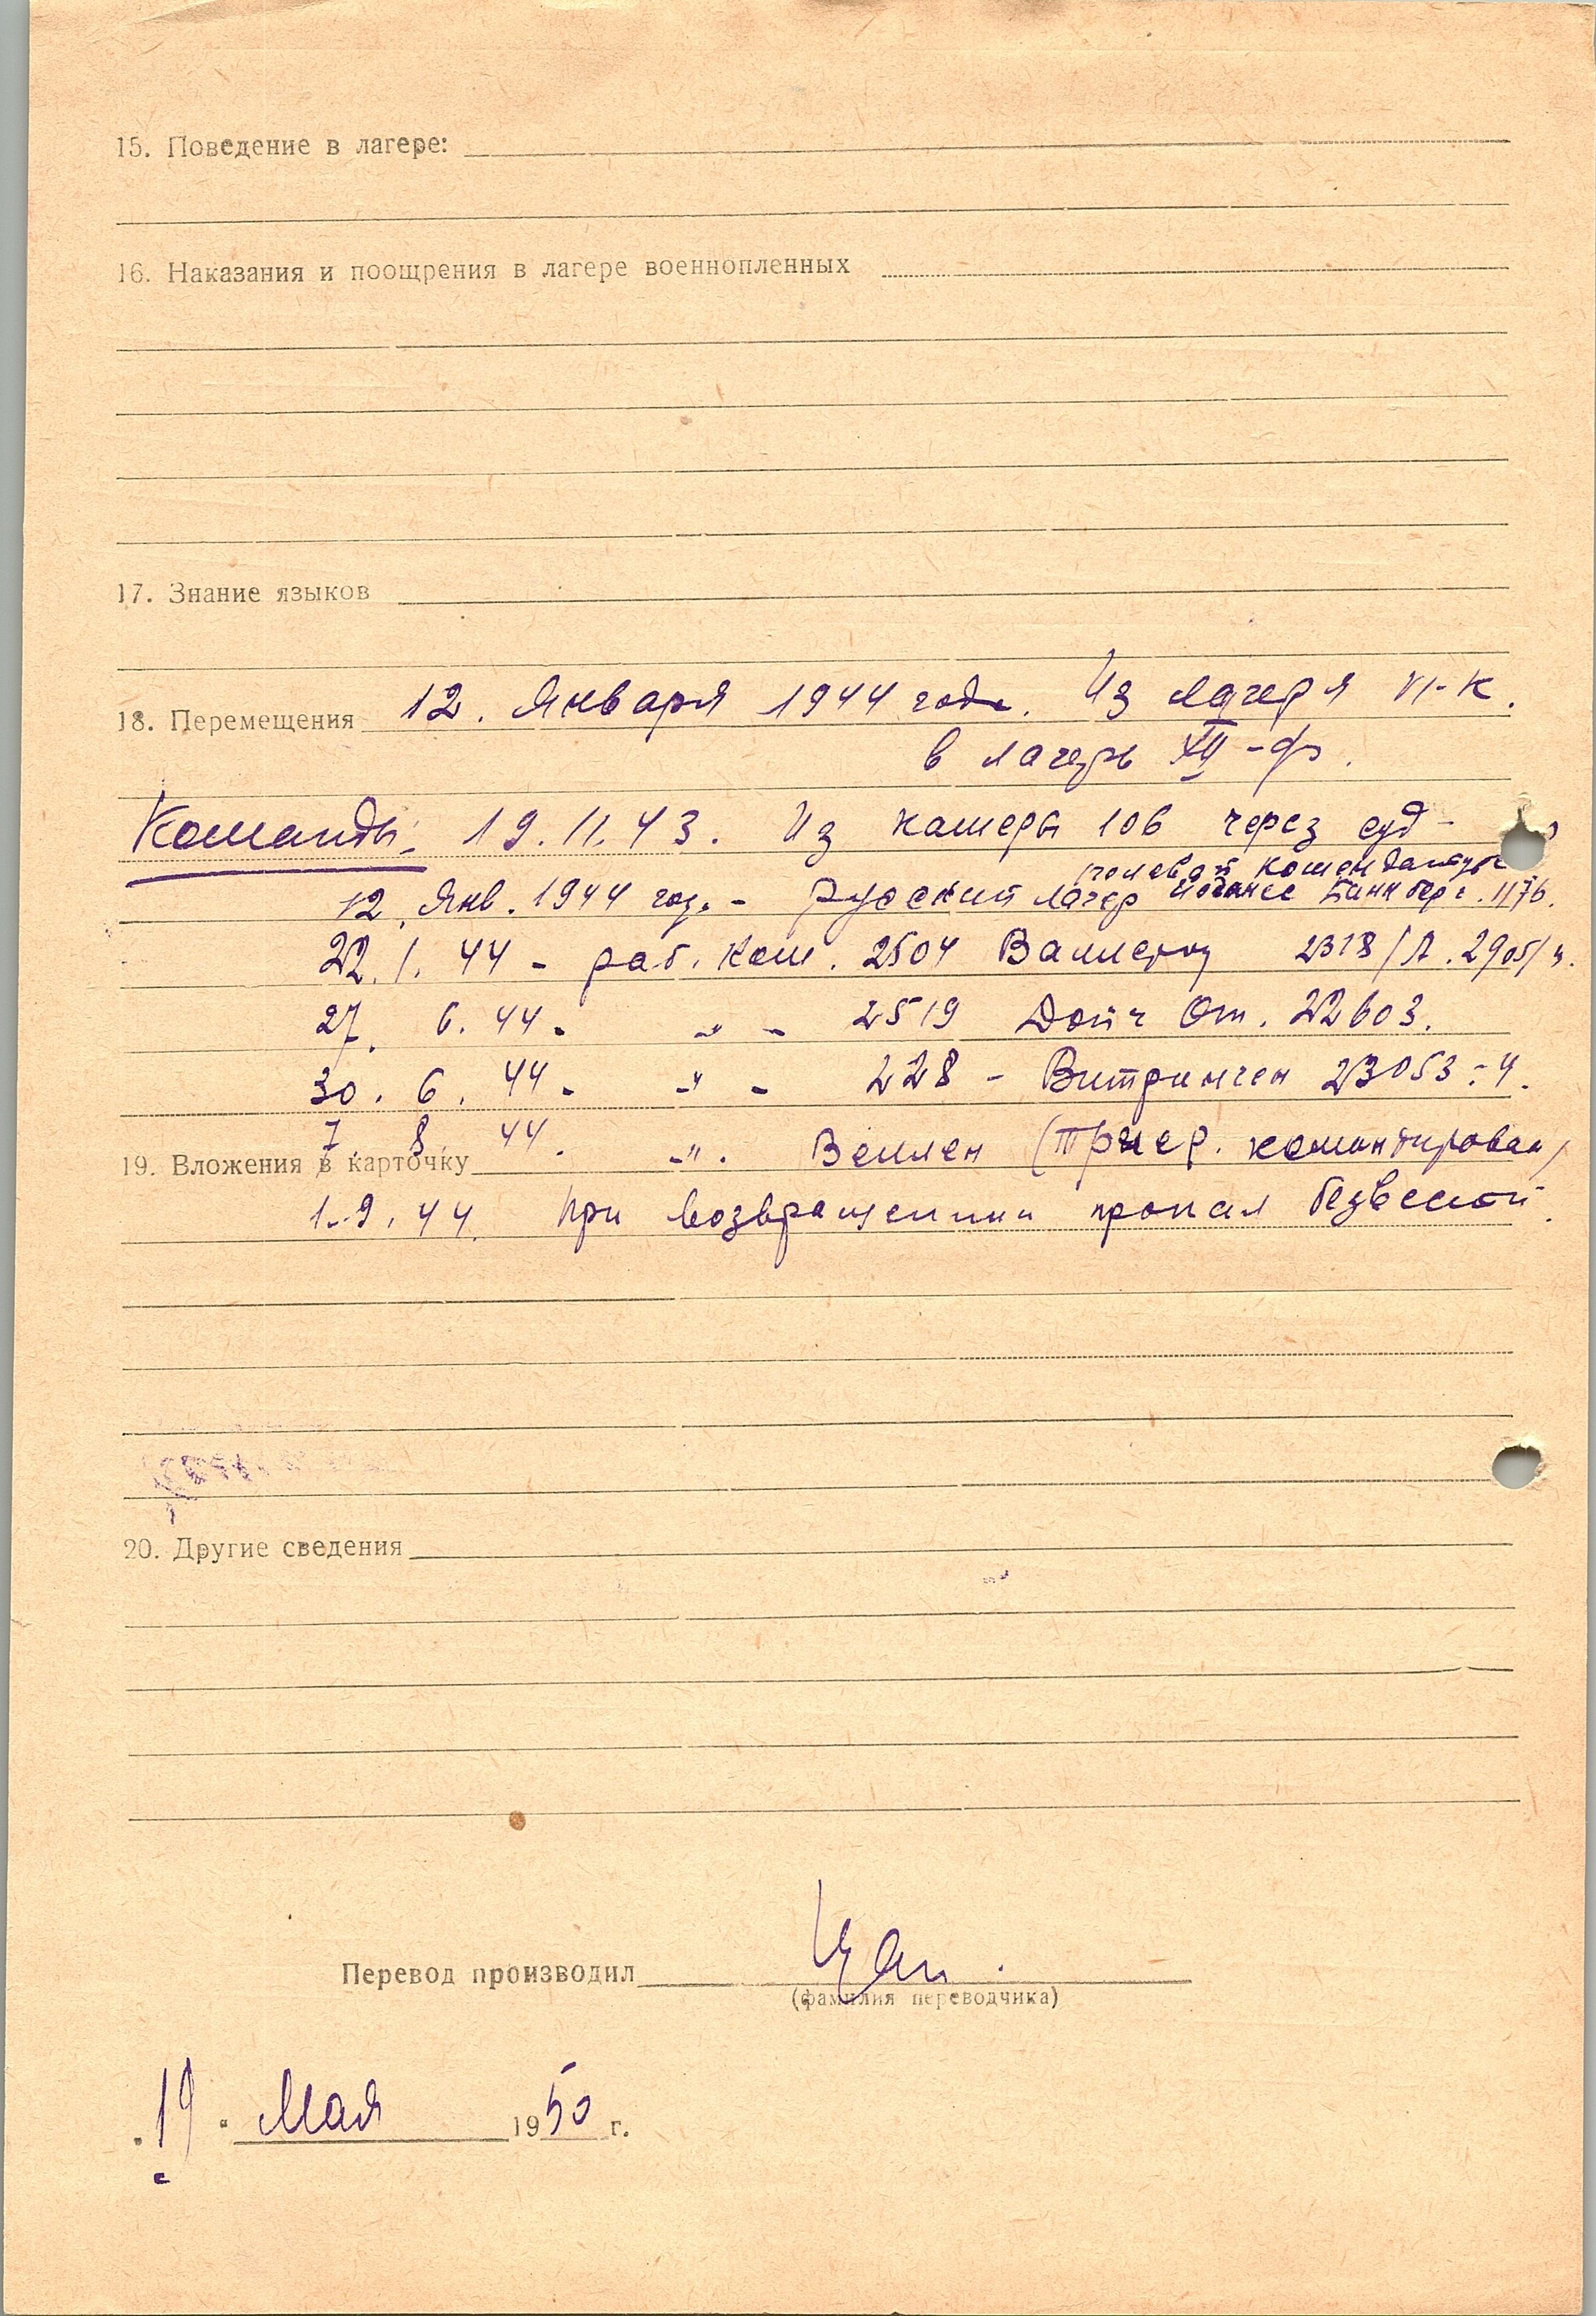 15. Поведение в лагере:
16. Наказания и поощрения в лагере военнопленных
17. Знание языков
18. Перемещения 12. Января 1944 года. Из лагеря VI-К.
в лагерь XII-ф.
Команды: 19.11.43. Из камеры 106 через суд-
полевой комендатуры
12. Янв. 1944 год. - русский лагер Иоганнес Баннберг. 1176.
22. 1. 44 - раб. Ком. 2504 2318/А. 2905/4.
27. 6. 44. - " - 2519 Дойч От. 22603.
30. 6. 44. - " - 228 - Витринген 23053:4.
7 8. 44. - " . Веллен (Триер. командирован)
19. Вложения в карточку
1. 9. 44. При возвращении пропал безвестной.
20. Другие сведения
Перевод производил
(фамилия переводчика)
„19" Мая 1950 г.